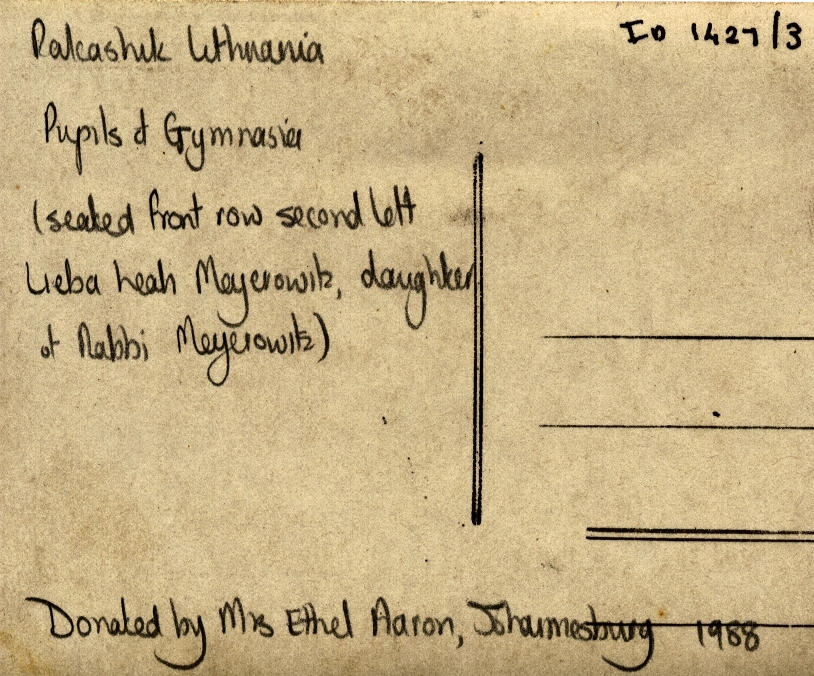 ID 1427/3
Rakashik Lithuania
Pupils of Gymnasia
(seated front row second left
Lieba Leah Meyerowitz, daughter
of Rabbi Meyerowitz)
Donated by Mrs Ethel Aaron, Johannesburg 1988